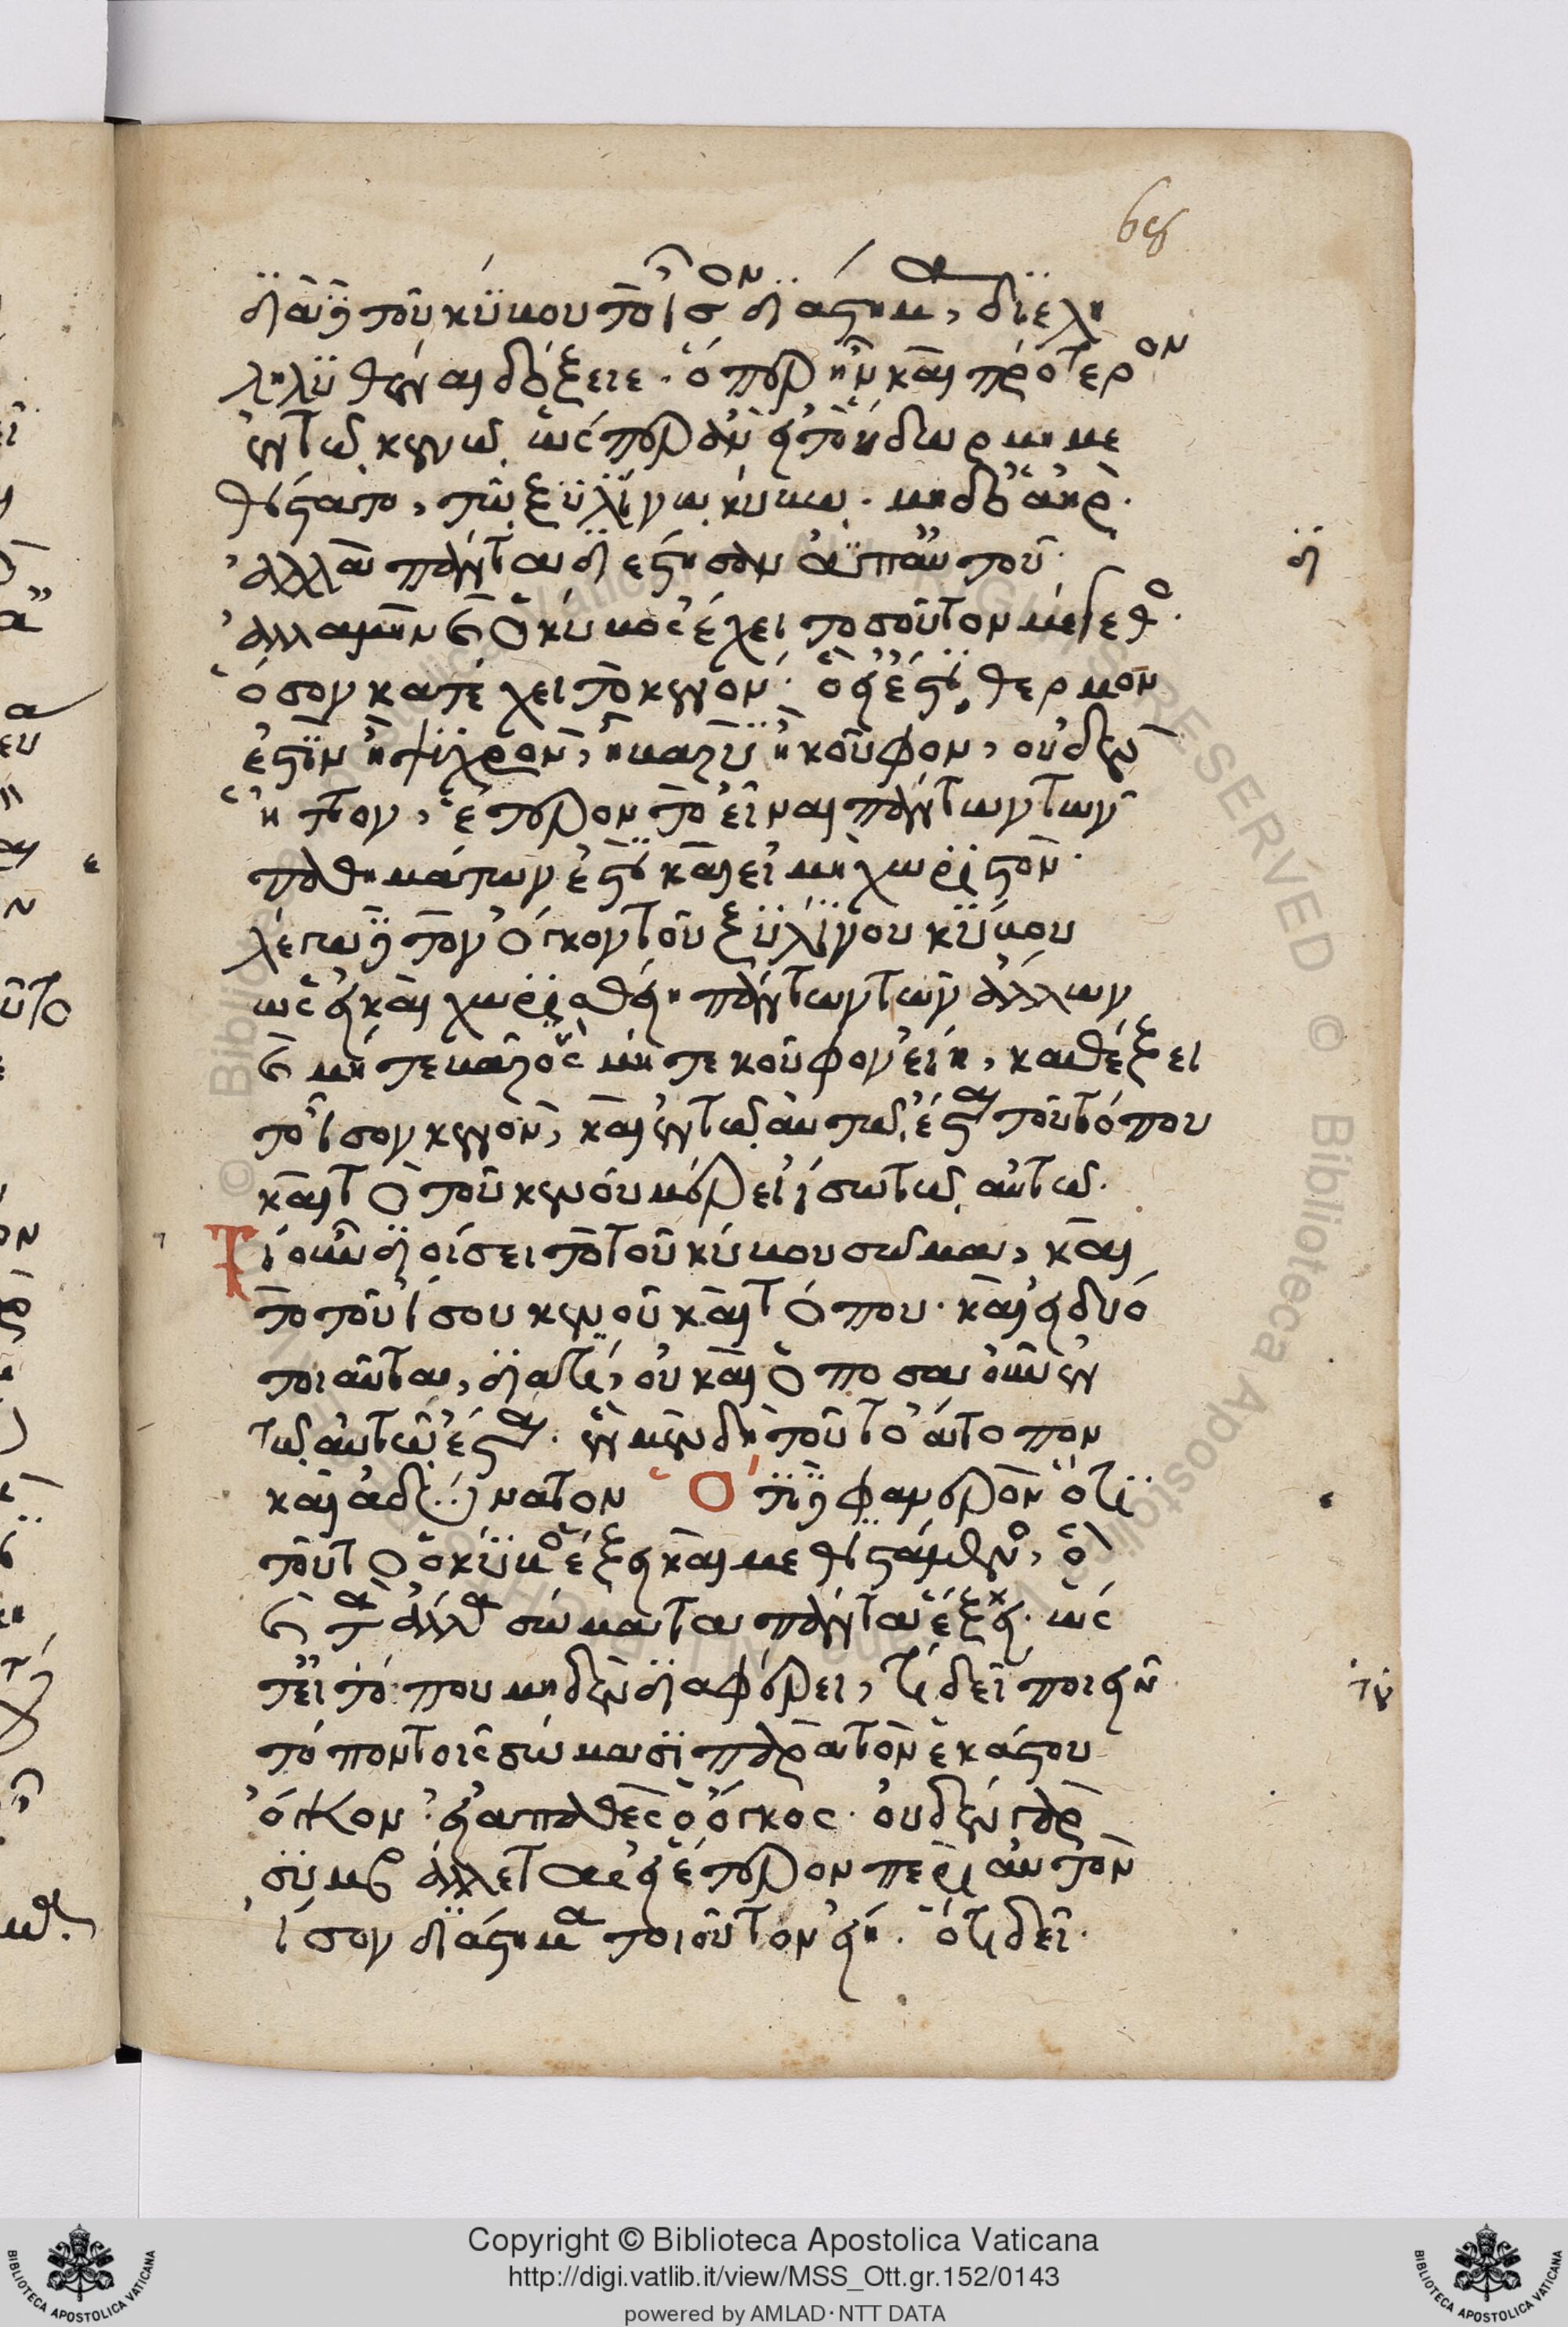 διὰ δὲ τοῦ κύβου τὸ ἴσον διάστημα, διελη
ληλυθέναι δόξειε. ὅπερ ἦν καὶ πρότερον
ἐν τῶ κενῶ ὥσπερ ἂν εἰ τὸ ὕδωρ μὴ με
θίστατο, τῶ ξυλίνω κύβω. μηδὲ ἀὴρ.
ἀλλὰ πάντα διεστησαν αὐπαυτοῦ.
ἀλλαμὴν καὶ ὁ κύβος ἔχει τοσοῦτον μέγεθος.
ὅσον κατέχει τὸ κενὸν. ὃ εἰ ἐστι θερμὸν
ἐστὶν ἢ ψυχρὸν, ἢ βαρὺ ἢ κοῦφον, οὐδὲν
ἧττον, ἕτερον τὸ εἶναι πάντων τῶν
παθημάτων ἐστὶ καὶ εἰ μὴ χωριστὸν.
λέγω δὲ τὸν ὄγκον τοῦ ξυλίνου κύβου
ὡς εἰ καὶ χωρισθείη πάντων τῶν ἄλλων
καὶ μήτε βαρὺς μήτε κοῦφον εἴη, καθέξει
τὸ ἴσον κενὸν, καὶ ἐν τῶ αὐτῶ ἔσται τοῦ τόπου
καὶ τὸ τοῦ κενοῦ μέρει ἴσω τῶ αὐτῶ.
Τί οὖν διοίσει τὸ τοῦ κύβου σῶμα, καὶ
τὸ τοῦ ἴσου κενοῦ καὶ τόπου. καὶ εἰ δυό
τοιαῦτα, διατί, οὐ καὶ ὁποσαοῦν ἐν
τῶ αὐτῶ ἔσται. ἓν μὲν δὴ τοῦτο ἄτοπον
καὶ ἀδύνατον Ὅτι δὲ φανερὸν ὅτι
τοῦτο ὁ κύβος ἕξει καὶ μεθιστάμενος, ὃ
καὶ τὰ ἄλλα σώματα πάντα ἕξει. ὡς
τεῖ τόπου μηδὲν διαφέρει, τί δεῖ ποιεῖν
τόπον τοῖς σώμασι παρὰ τὸν ἑκάστου
ὄγκον. εἰ ἀπαθὲς ὁ ὄγκος. οὐδὲν γὰρ
συμβάλλεται εἰ ἕτερον περὶ αὐτὸν
ἴσον διάστημα τοιοῦτον εἴη. ὅτι δεῖ.
Copyright © Biblioteca Apostolica Vaticana
http://digi.vatlib.it/view/MSS_Ott.gr.152/0143
powered by AMLAD·NTT DATA